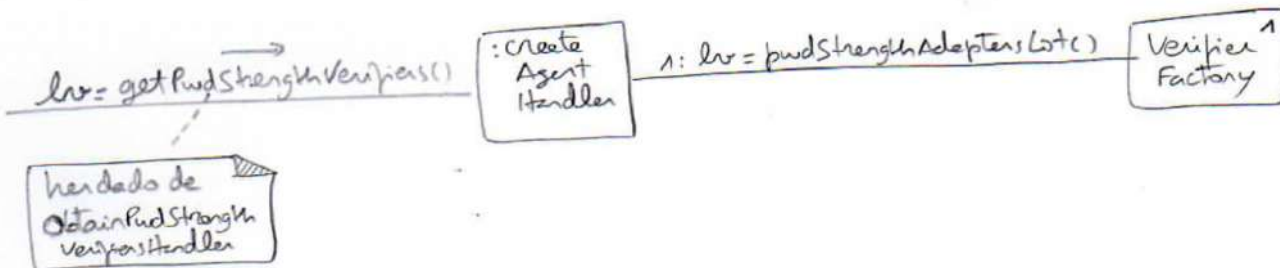 lv = getPwdStrengthVerifiers()
:create
Agent
Handler
1: lv = pwdStrengthAdaptersList()
Verifier 1
Factory
herdado de
ObtainPwdStrength
VerifiersHandler